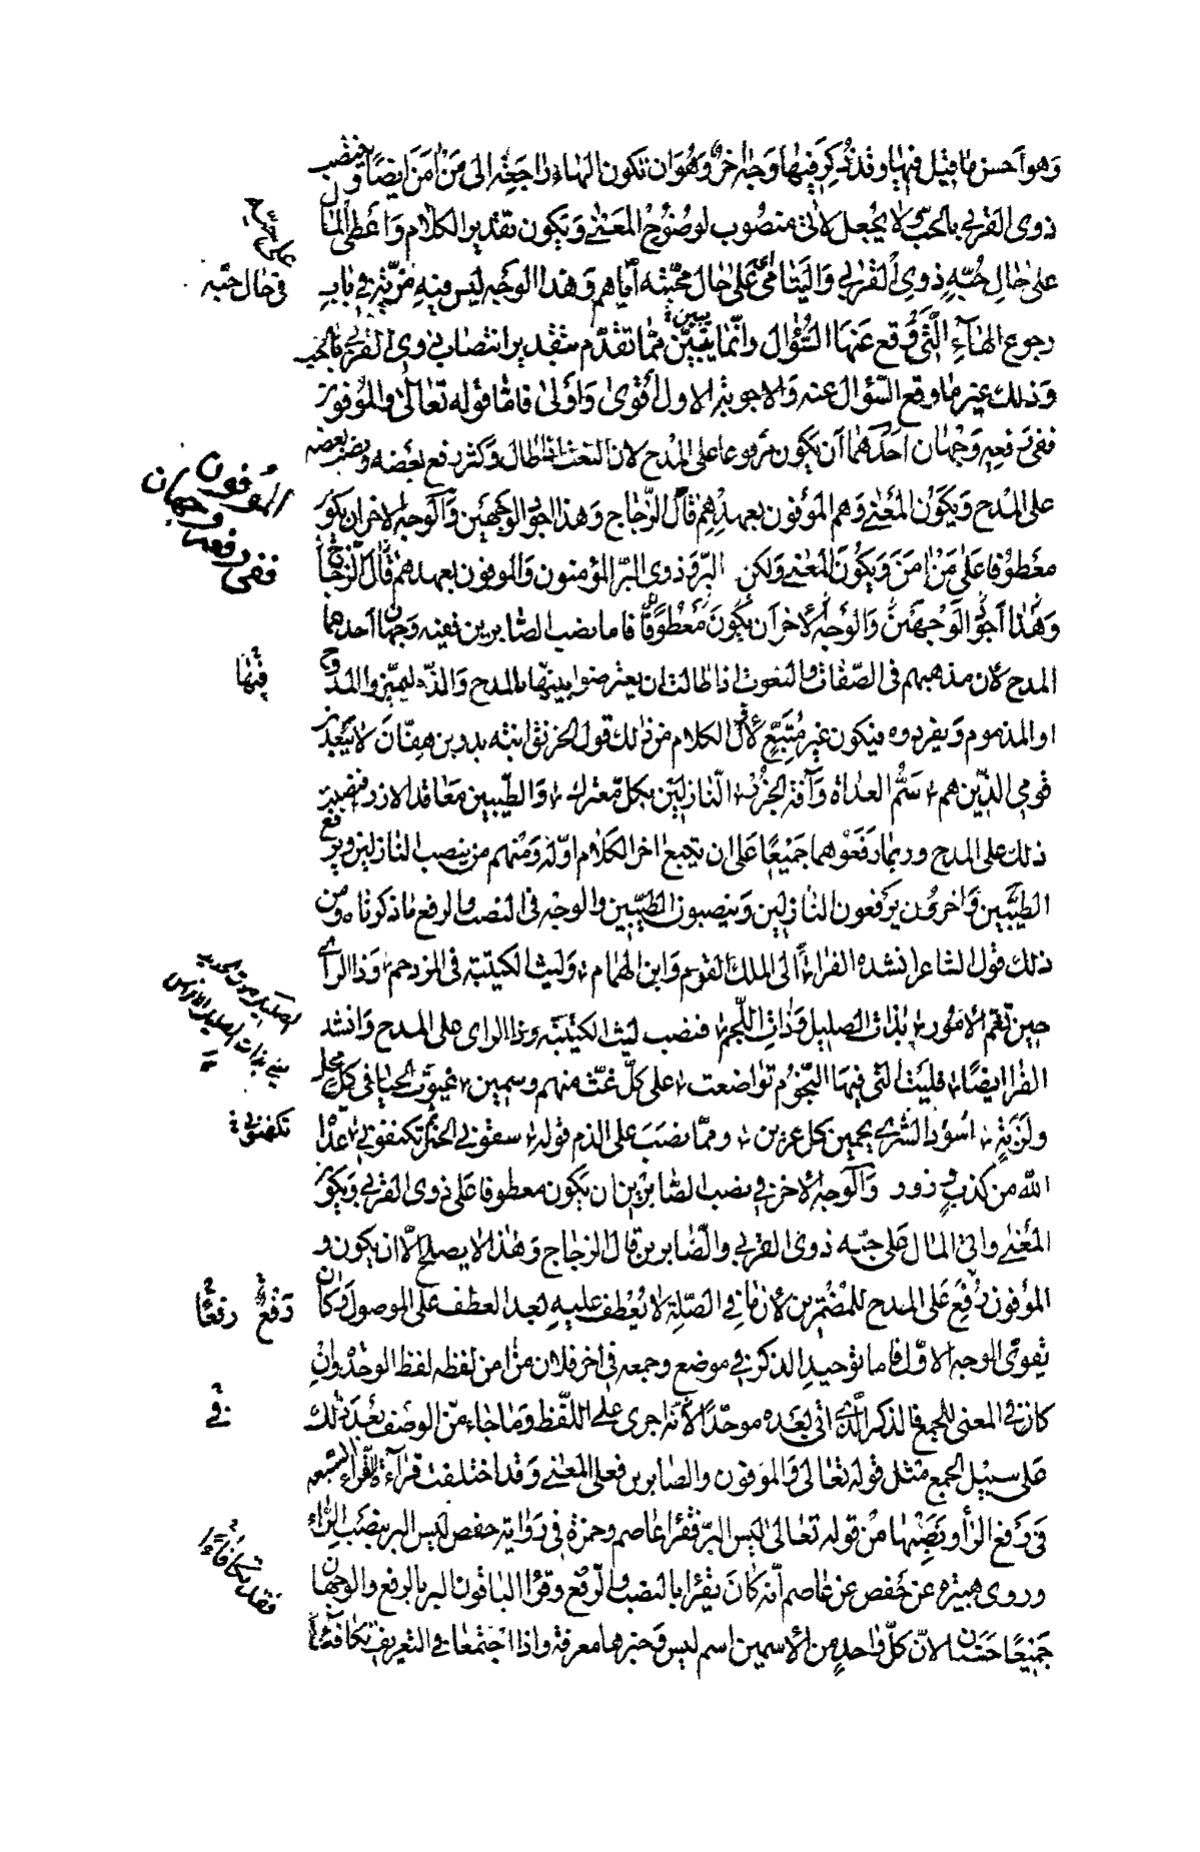 وهو أحسن ما قيل فيها وقد ذكر فيها وجه اخر وهو ان تكون الهاء راجعة الى من امن ايضا وينتصب
ذوي القربى بالحب ولا يجعل لاتى منصوب لوضوح المعنى ويكون تقدير الكلام واعطى المال
على حال حبه ذوي القربى واليتامى على حال محبته اياهم وهذا الوجه ليس فيه مزية في باب
رجوع الهاء التي وقع عنها السؤال وانما يتبين مما تقدم بتقدير انتصاب ذوي القربى بالحب
وذلك غير ما وقع السؤال عنه والاجوبة الاول أقوى وأولى فاما قوله تعالى والموفون
ففي رفعه وجهان احدهما أن يكون مرفوعا على المدح لان النعت اذا طال وكثر رفع بعضه ونصب بعضه
على المدح ويكون المعنى وهم الموفون بعهدهم قال الزجاج وهذا اجود الوجهين والوجه الاخر ان يكون
معطوفا على من امن ويكون المعنى ولكن البر وذوي البر المؤمنون والموفون بعهدهم قال الزجاج
وهذا أجود الوجهين والوجه الاخر أن يكون معطوفا فاما نصب الصابرين ففيه وجهان احدهما
المدح لان مذهبهم في الصفات والنعوت اذا طالت ان يعترضوا بينها بالمدح والذم ليميزوا الممدوح
او المذموم ويفردوه فيكون غير متبع لاول الكلام من ذلك قول الخرنق ابنة بدر بن هفان لا يبعدن
قومي الذين هم سم العداة وآفة الجزر النازلين بكل معترك والطيبين معاقد الازر فنصبت
ذلك على المدح وربما رفعوهما جميعا على ان يتبع اخر الكلام اوله ومنهم من ينصب النازلين ويرفع
الطيبين واخرون يرفعون النازلين وينصبون الطيبين والوجه في النصب والرفع ما ذكرناه ومن
ذلك قول الشاعر انشده الفراء الى الملك القرم وابن الهمام وليث الكتيبة في المزدحم وذا الرأي
حين تغم الامور بذات الصليل وذات اللجم فنصب ليث الكتيبة وذا الراي على المدح وانشد
الفراء ايضا فليت التي فيها النجوم تواضعت على كل غث منهم وسمين غيوث الحيا في كل محل
ولزبة اسود الشرى يحمين كل عرين ومما نصب على الذم قوله سقوني الخمر ثم تكنفوني عداة
الله من كذب وزور والوجه الاخر في نصب الصابرين ان يكون معطوفا على ذوي القربى ويكون
المعنى واتى المال على حبه ذوي القربى والصابرين قال الزجاج وهذا لا يصلح الا ان يكون و
الموفون رفع على المدح للمضمرين لان ما في الصلة لا يعطف عليه بعد العطف على الموصول وكان
يقوى الوجه الاول فاما توحيد الذكر في موضع وجمعه في اخر فلان من امن لفظه لفظ الوحدة وان
كان في المعنى للجمع فالذكر الذي اتى بعده موحدا لانه اجرى على اللفظ وما جاء من الوصف بعد ذلك
على سبيل الجمع مثل قوله تعالى والموفون والصابرين فعلى المعنى وقد اختلفت قراءة القراء السبعة
في رفع الراء ونصبها من قوله تعالى ليس البر فقرأ عاصم وحمزة في رواية حفص ليس البر بنصب الراء
وروى هبيرة عن حفص عن عاصم أنه كان يقرأ بالنصب والرفع وقرأ الباقون البر بالرفع والوجهان
جميعا حسنان لان كل واحد من الاسمين اسم ليس وخبرها معرفة واذا اجتمعا في التعريف تكافئا
في حال حبه
الموفون
ففي رفعه وجهان
فيها
تكنفوني
رفع رفعا
في
فقد تكافأا